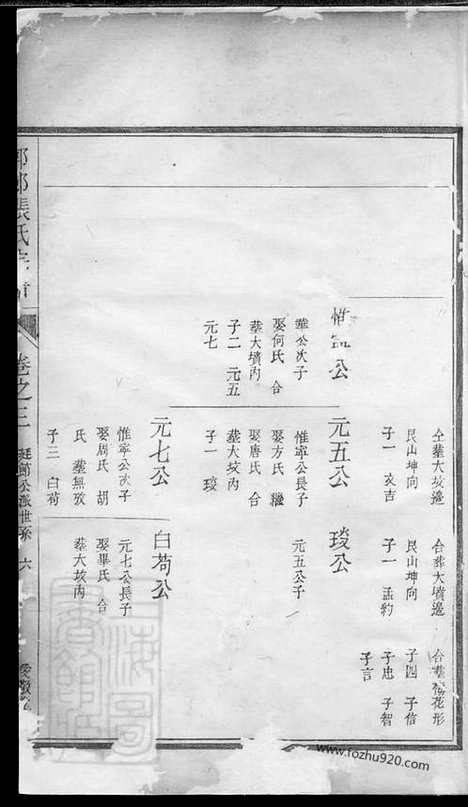 仝塟大坟邊
艮山坤向
子一 亥吉
合葬大墳邊
艮山坤向
子一 孟約
合塟荷花形
子四 子信
子忠 子智
子言
惟寧公
華公次子
娶何氏 合
塟大墳內
子二 元五
元七
元五公
惟寧公長子
娶方氏 繼
娶唐氏 合
塟大坟內
子一 琰
琰公
元五公子
元七公
惟寧公次子
娶周氏 胡
氏 塟無攷
子三 白荀
白荀公
元七公長子
娶畢氏 合
塟大坟內
張氏
卷之三
公派世系 六
上海圖書館藏
www.fozhu920.com